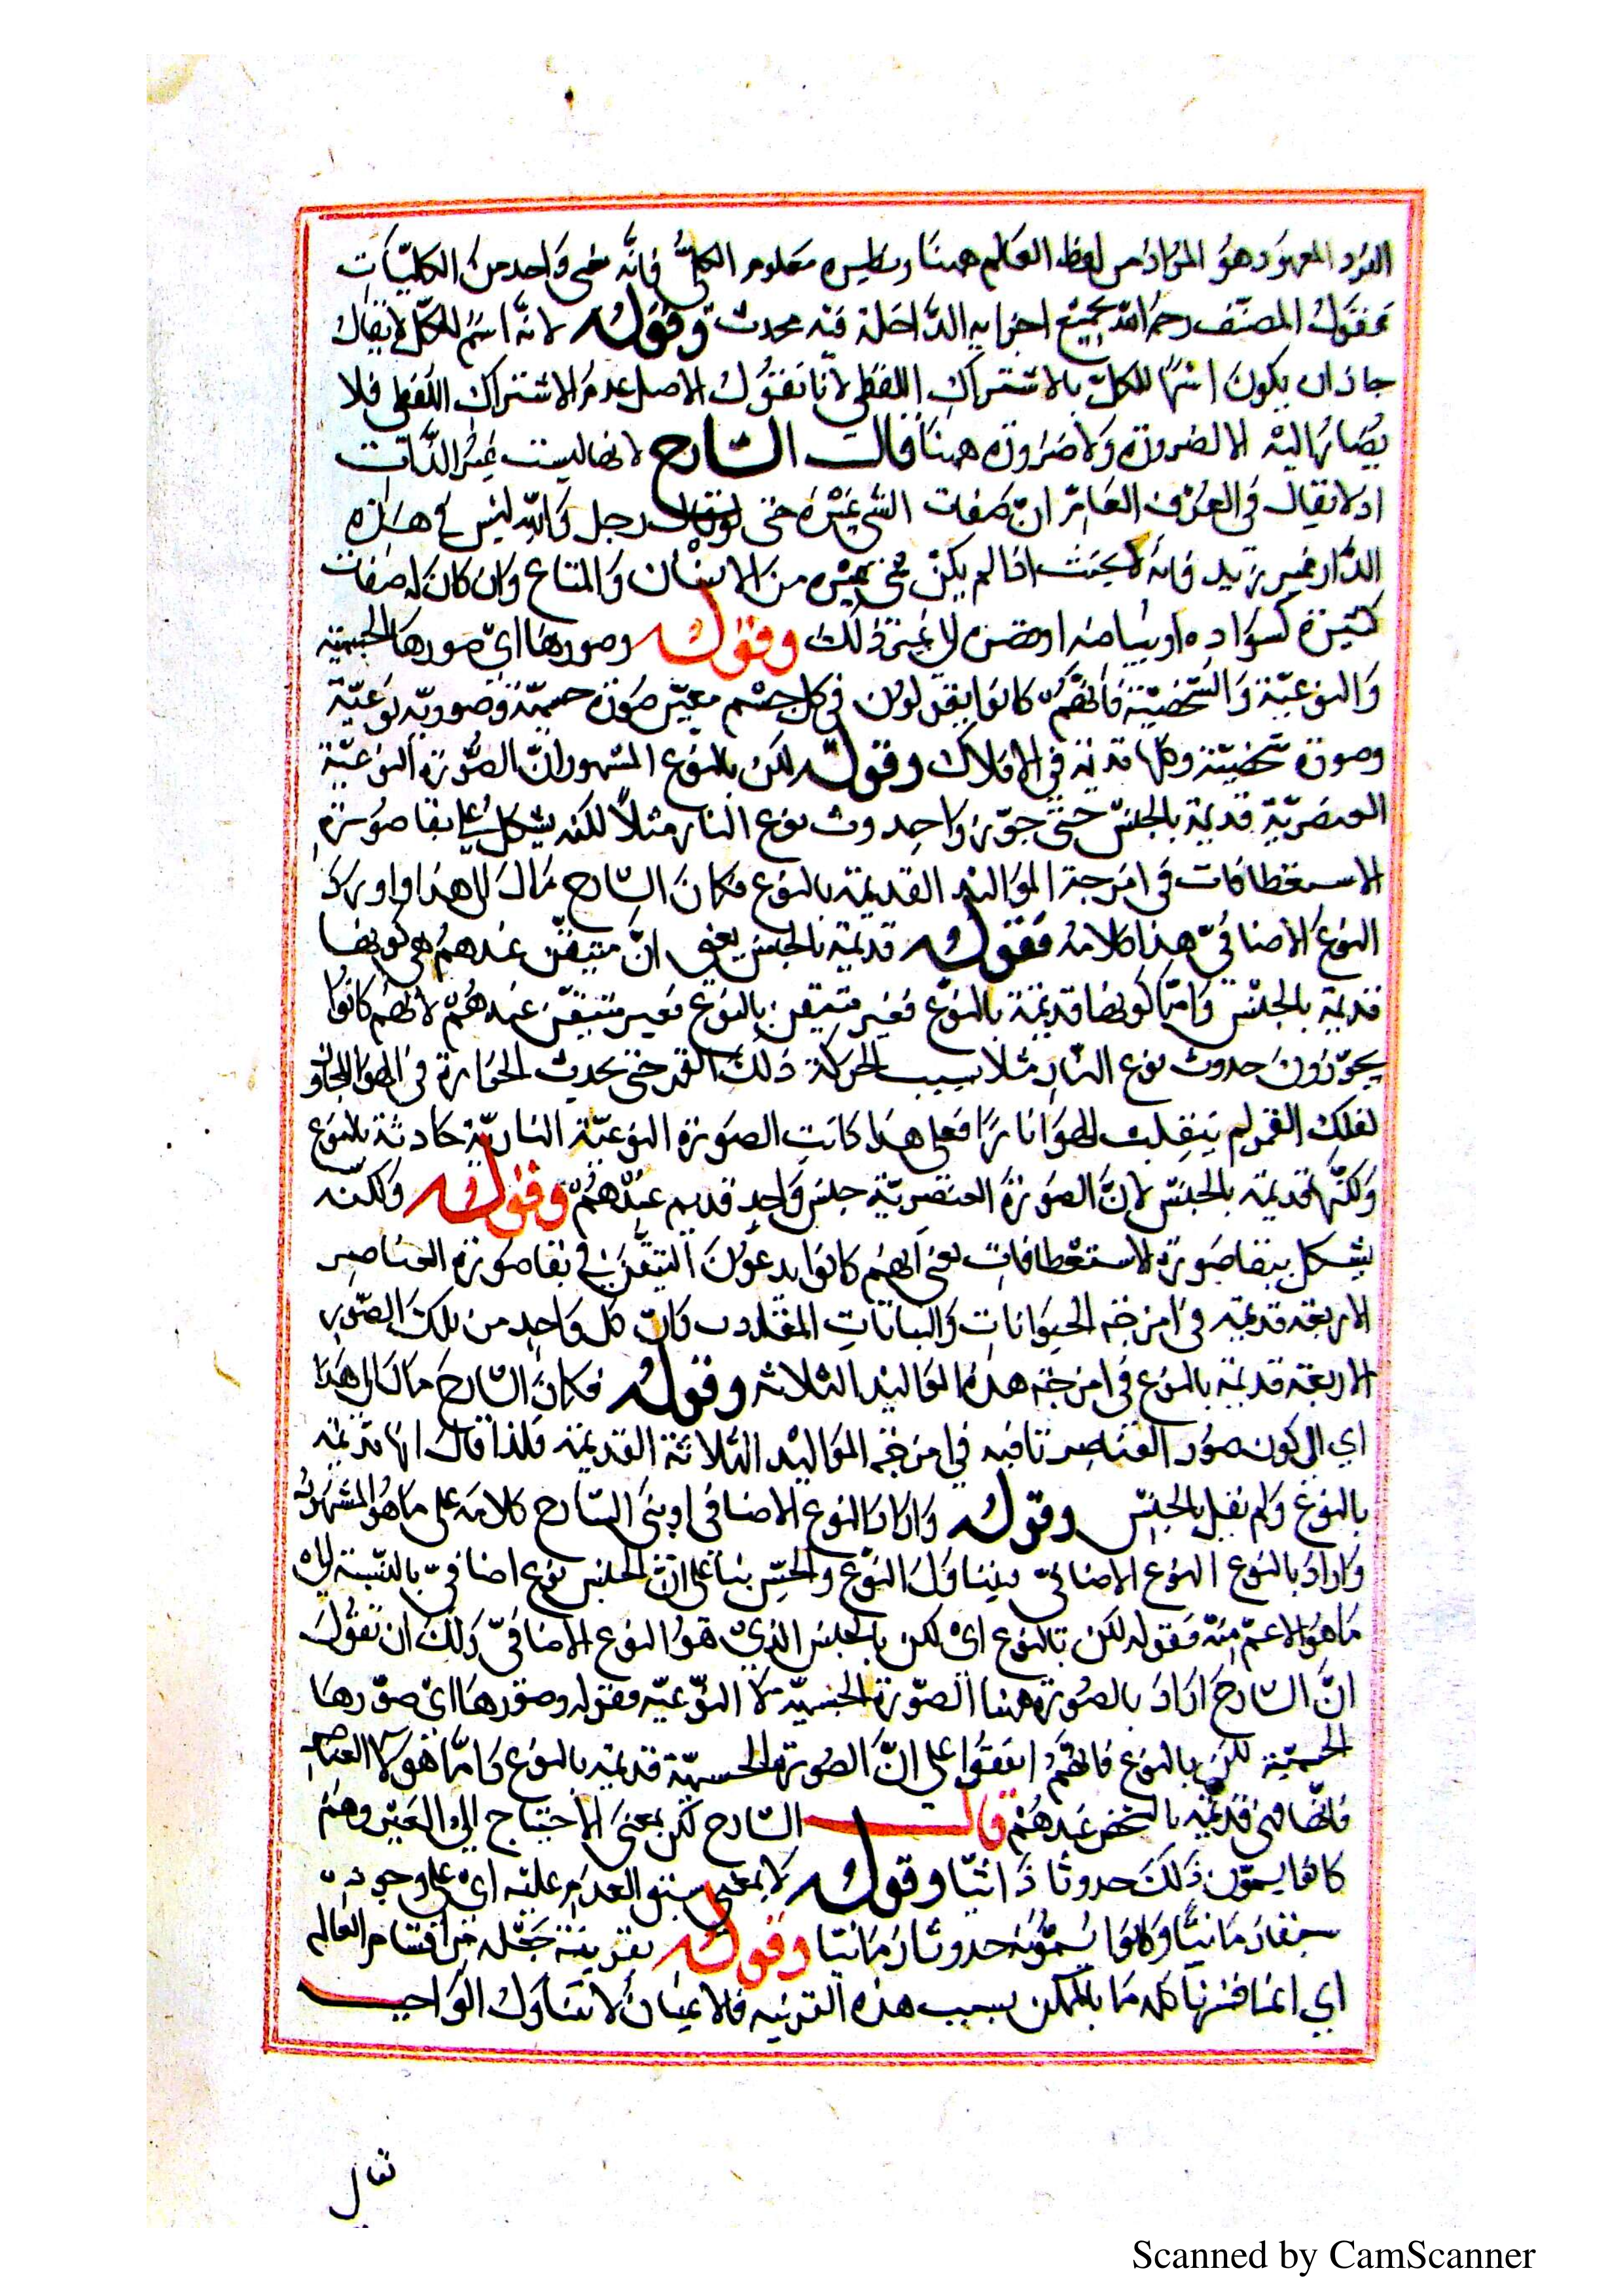 الفرد المعهود هو المراد من لفظ العالم ههنا معلوم الكلي فانه شي واحد من الكليات
فنقول المصنف رحمه الله بجميع اجزايه الداخلة فيه محدث وقوله لانه اسم للكل لا يقال
جاز ان يكون اسما للكل بالاشتراك اللفظي لانا نقول الاصل عدم الاشتراك اللفظي فلا
يصار اليه الا لضرورة ولا ضرورة ههنا قال الشارح لانها ليست غير الذات
اذ لا يقال في العرف العام ان صفات الشي غيره حتى لو قال رجل والله ليس في هذه
الدار غير زيد فانه لا يحنث اذا لم يكن غيره من الانسان والمتاع وان كان له صفات
كثيرة كسواده او بياضه الي غير ذلك وقوله وصورها اي صورها الجسمية
والنوعية والشخصية فانهم كانوا يقولون في كل جسم معين صورة جسمية وصورة نوعية
وصورة شخصية وكلها قديمة في الافلاك وقوله لكن بالنوع المشهور ان الصورة النوعية
العنصرية قديمة بالجنس حتى جوزوا حدوث نوع النار مثلا لكنه يشكل بقا صورة
الاستقطافات في امزجة المواليد القديمة بالنوع فكان الشارح مال الي هذا او اراد
النوع الاضافي هذا كلامه فقوله قديمة بالجنس يعني ان متيقن عندهم هي كونها
قديمة بالجنس واما كونها قديمة بالنوع فغير متيقن بالنوع فغير متيقن عندهم لانهم كانوا
يجوزون حدوث نوع النار مثلا بسبب الحركة ذلك القمر حتى تحدث الحرارة في الهوا المجاور
لفلك القمر ينقلب الهوا نارا فعلى هذا كانت الصورة النوعية النارية حادثة بالنوع
ولكنها قديمة بالجنس لان الصورة العنصرية جنس واحد قديم عندهم وقوله ولكنه
يشكل ببقا صورة الاستقطافات يعني انهم كانوا يدعون التيقن في بقا صورة العناصر
الاربعة قديمة في امزجة الحيوانات والنباتات كل واحد من تلك الصور
الاربعة قديمة بالنوع في امزجة هذه المواليد الثلاثة وقوله فكان الشارح مال الى هذا
اي الى كون صور العناصر في امزجة المواليد الثلاثة القديمة فلذا قال انها قديمة
بالنوع ولم يقل بالجنس وقوله واراد النوع الاضافي او بنى الشارح كلامه على ما هو المشهور
واراد بالنوع النوع الاضافي يتناول النوع والجنس بنا على ان الجنس نوع اضافي بالنسبة الى
ما هو الاعم منه فقوله لكن بالنوع اي لكن بالجنس الذي هو النوع الاضافي ذلك ان تقول
ان الشارح اراد بالصورة ههنا الصورة الجنسية لا النوعية فقوله وصورها اي صورها
الجسمية لكن بالنوع فانهم اتفقوا على ان الصورة الجسمية قديمة بالنوع واما هيولا العناصر
فانها هي قديمة بالشخص عندهم قال الشارح لكن بمعنى الاحتياج الي الغير وهم
كانوا يسمون ذلك حدوثا ذاتيا وقوله لا بمعنى سبق العدم عليه اي على وجوده
سبقا زمانيا وكانوا يسمونه حدوثا زمانيا وقوله بقرينة جعله من اقسام العالم
اي انما فسرنا كلمة ما بالممكن بسبب هذه القرينة فالاعيان لا تتناول الواجب